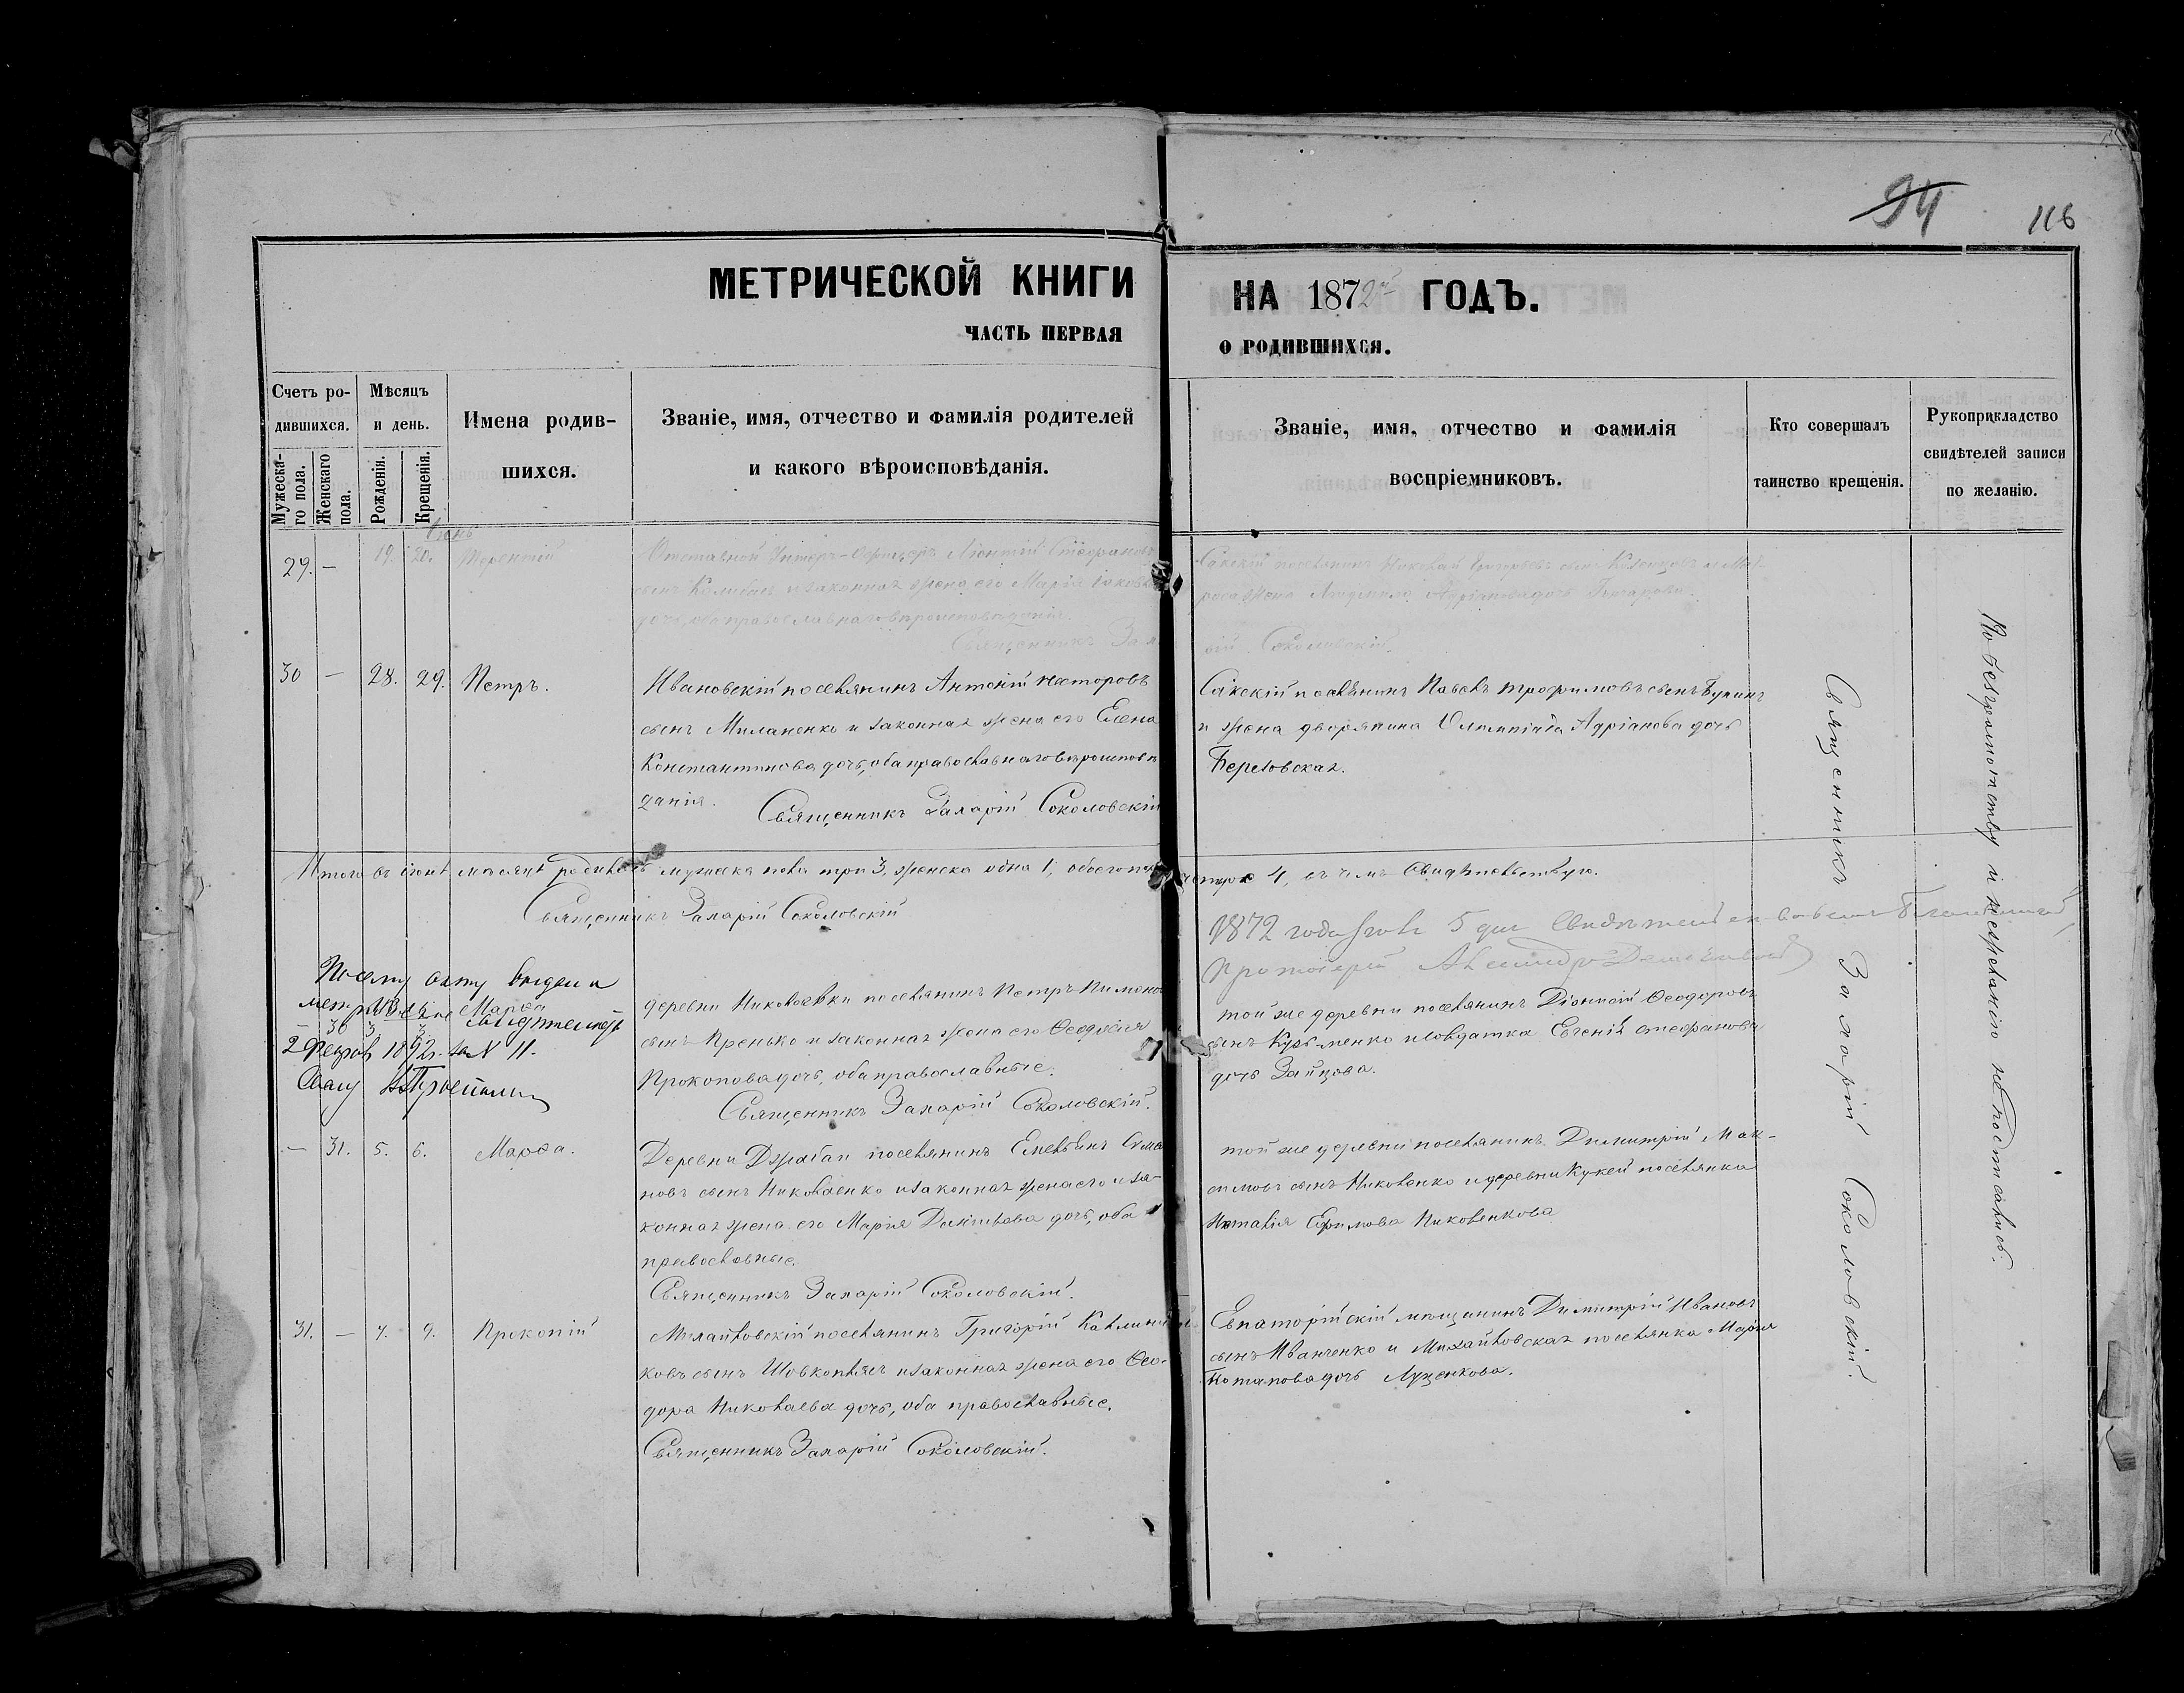 94 116
МЕТРИЧЕСКОЙ КНИГИ НА 1872й ГОДЪ.
ЧАСТЬ ПЕРВАЯ О РОДИВШИХСЯ.
Счетъ ро-
дившихся.
Мужеска-
го пола.
Женскаго
пола.
Мѣсяцъ
и день.
Рожденія.
Крещенія.
Имена родив-
шихся.
Званіе, имя, отчество и фамилія родителей
и какого вѣроисповѣданія.
Званіе, имя, отчество и фамилія
воспріемниковъ.
Кто совершалъ
таинство крещенія.
Рукоприкладство
свидѣтелей записи
по желанію.
29. — 19. 20. Терентій
Отставной Унтеръ-Офицеръ Леонтій Стефановъ
сынъ и законная жена его Марія Іаковл
дочь, оба православнаго вѣроисповѣданія.
Сакскій поселянинъ Николай Григорьевъ сынъ
Людмила Адріановадочь
Священникъ За Соколовскій.
30 — 28. 29. Петръ.
Ивановскій поселянинъ Антоній Несторовъ
сынъ Миланенко и законная жена его Елена
Константинова дочь, оба православнаго вѣроисповѣ
данія.
Священникъ Захарій Соколовскій
Сакскій поселянинъ Павелъ Трофимовъ сынъ Бунинъ
и жена дворянина Олимпіада Адріанова дочь
Березовская.
Итого въ іюнѣ мѣсяцѣ родилось мужеска пола три 3, женска одна 1, обоего пола четыре 4, въ чемъ Свидѣтельствую.
Священникъ Захарій Соколовскій
1872 года 5 дня
Протоіерей
По сему акту выдана
метрич
2 Февраля 1892 г. за № 11.
— 30 3. 3. Марѳа
деревни Николаевки поселянинъ Петръ Пимено
сынъ Пренько и законная жена его Ѳеодосія
Прокоповадочь, оба православные.
Священникъ Захарій Соколовскій.
той же деревни поселянинъ Діонисій Ѳеодоровъ
сынъ Кузьменко и солдатка Евгенія Стефанова
дочь Зайцова.
— 31. 5. 6. Марѳа.
Деревни Джабан поселянинъ Емельянъ Сима
новъ сынъ Николаенко и законная жена его и за-
конная жена его Марія Даніилова дочь, оба
православные.
Священникъ Захарій Соколовскій.
той же деревни поселянинъ Димитрій Мак-
симовъ сынъ Николенко и деревни Кукей поселянка
Наталія Ефимова Николенкова
31. — 7. 9. Прокопій
Михайловскій поселянинъ Григорій Каллини
ковъ сынъ Шовкоплясъ и законная жена его Ѳео-
дора Николаева дочь, оба православные.
Священникъ Захарій Соколовскій.
Евпаторійскій мѣщанинъ Димитрій Ивановъ
сынъ Иванченко и Михайловская поселянка Марія
Потапова дочь Луценкова.
Священникъ Захарій Соколовскій.
По безграмотству и нежеланію не подписались.